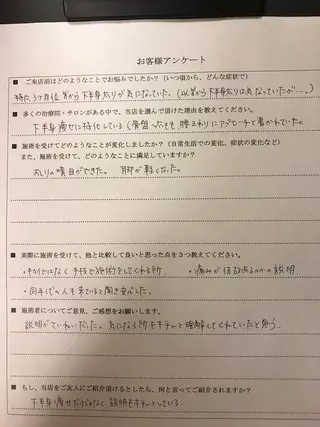 お客様アンケート
■ ご来店前はどのようなことでお悩みでしたか?(いつ頃から、どんな症状で)
特に3ヶ月位前から下半身太りが気になっていた。(以前から下半身太りは気になっていたが…。)
■ 多くの治療院・サロンがある中で、当店を選んで頂けた理由を教えてください。
下半身痩せに特化している(骨盤、太もも、腰まわりにアプローチと書かれていた。
■ 施術を受けてどのようなことが変化しましたか?(日常生活での変化、症状の変化など)
また、施術を受けて、どのようことに満足していますか?
おしりの噴目ができた。 脚が軽くなった。
■ 実際に施術を受けて、他と比較して良いと思った点を3つ教えてください。
・キカイではなく手技で施術をしてくれる所 ・痛みが伴なあるのかの説明
・同年代の人も来ていると聞き安心した。
■ 施術者についてご意見、ご感想をお願いします。
説明がていねいだった。気になる所をキチンと理解してくれていたと思う。
■ もし、当店をご友人にご紹介頂けるとしたら、何と言ってご紹介されますか?
下半身痩せだけじゃなく 説明もキチンとしている。